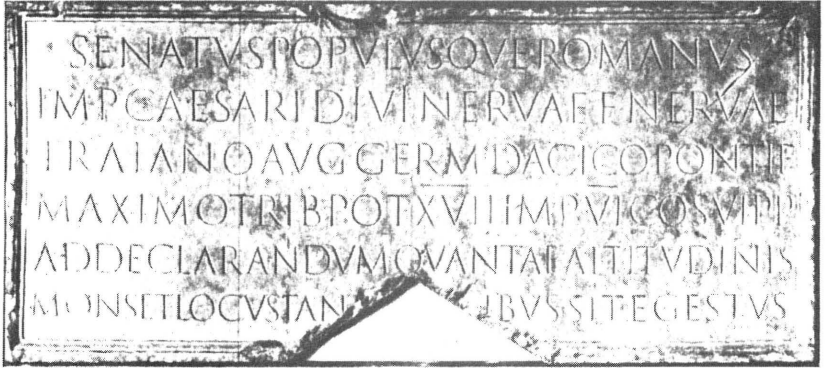 SENATVSPOPVLVSQVEROMANVS
IMPCAESARIDIVINERVAEFNERVAE
TRAIANOAVGGERMDACICOPONTIF
MAXIMOTRIBPOTXVIIIMPVICOSVIPP
ADDECLARANDVMQVANTAEALTITVDINIS
MONSETLOCVSTAN IBVSSITEGESTVS